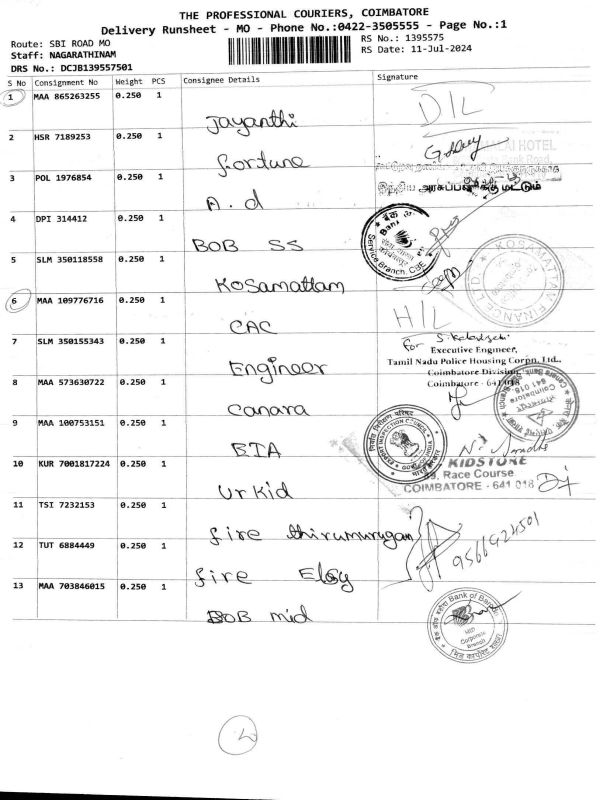 THE PROFESSIONAL COURIERS, COIMBATORE
Delivery Runsheet - MO - Phone No.:0422-3505555 - Page No.:1
Route: SBI ROAD MO
RS No.: 1395575
Staff: NAGARATHINAM
RS Date: 11-Jul-2024
DRS No.: DCJB139557501
S No Consignment No Weight PCS Consignee Details Signature
1 MAA 865263255 0.250 1 Jayanthi D/L
2 HSR 7189253 0.250 1 fortune
HOTEL
3 POL 1976854 0.250 1 A.d
4 DPI 314412 0.250 1 BOB SS
Service Branch, CBE
5 SLM 350118558 0.250 1 Kosamattam
KOSAMATTAM FINANCE LTD.
6 MAA 109776716 0.250 1 CAC H/L
7 SLM 350155343 0.250 1 Engineer
for
Executive Engineer,
Tamil Nadu Police Housing Corpn. Ltd.,
Coimbatore Division
Coimbatore - 641 018
8 MAA 573630722 0.250 1 Canara
Coimbatore
641 018
9 MAA 100753151 0.250 1 EIA
EXPORT INSPECTION COUNCIL
10 KUR 7001817224 0.250 1 Ur Kid
KIDSTORE
Race Course
COIMBATORE - 641 018
11 TSI 7232153 0.250 1 fire thirumurugan
12 TUT 6884449 0.250 1 fire Elogy
13 MAA 703846015 0.250 1 BOB mid
Bank of Baroda
Mid
Corporate
Branch